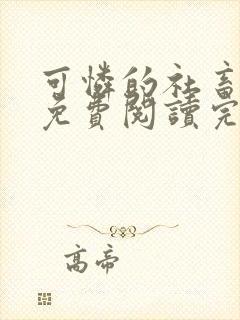 可憐的社畜
免費閱讀完
高帝